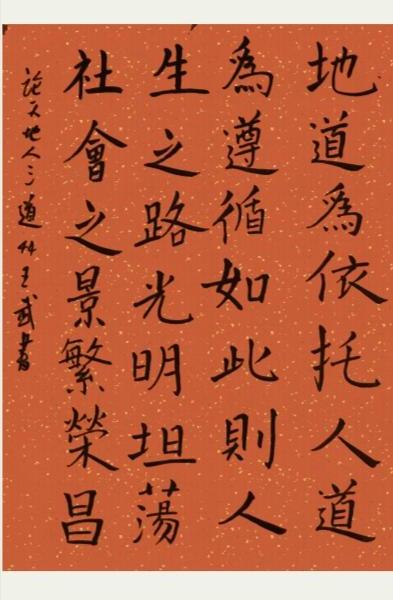 地道爲依托人道
爲遵循如此則人
生之路光明坦蕩
社會之景繁榮昌
論天地人三道 王武書